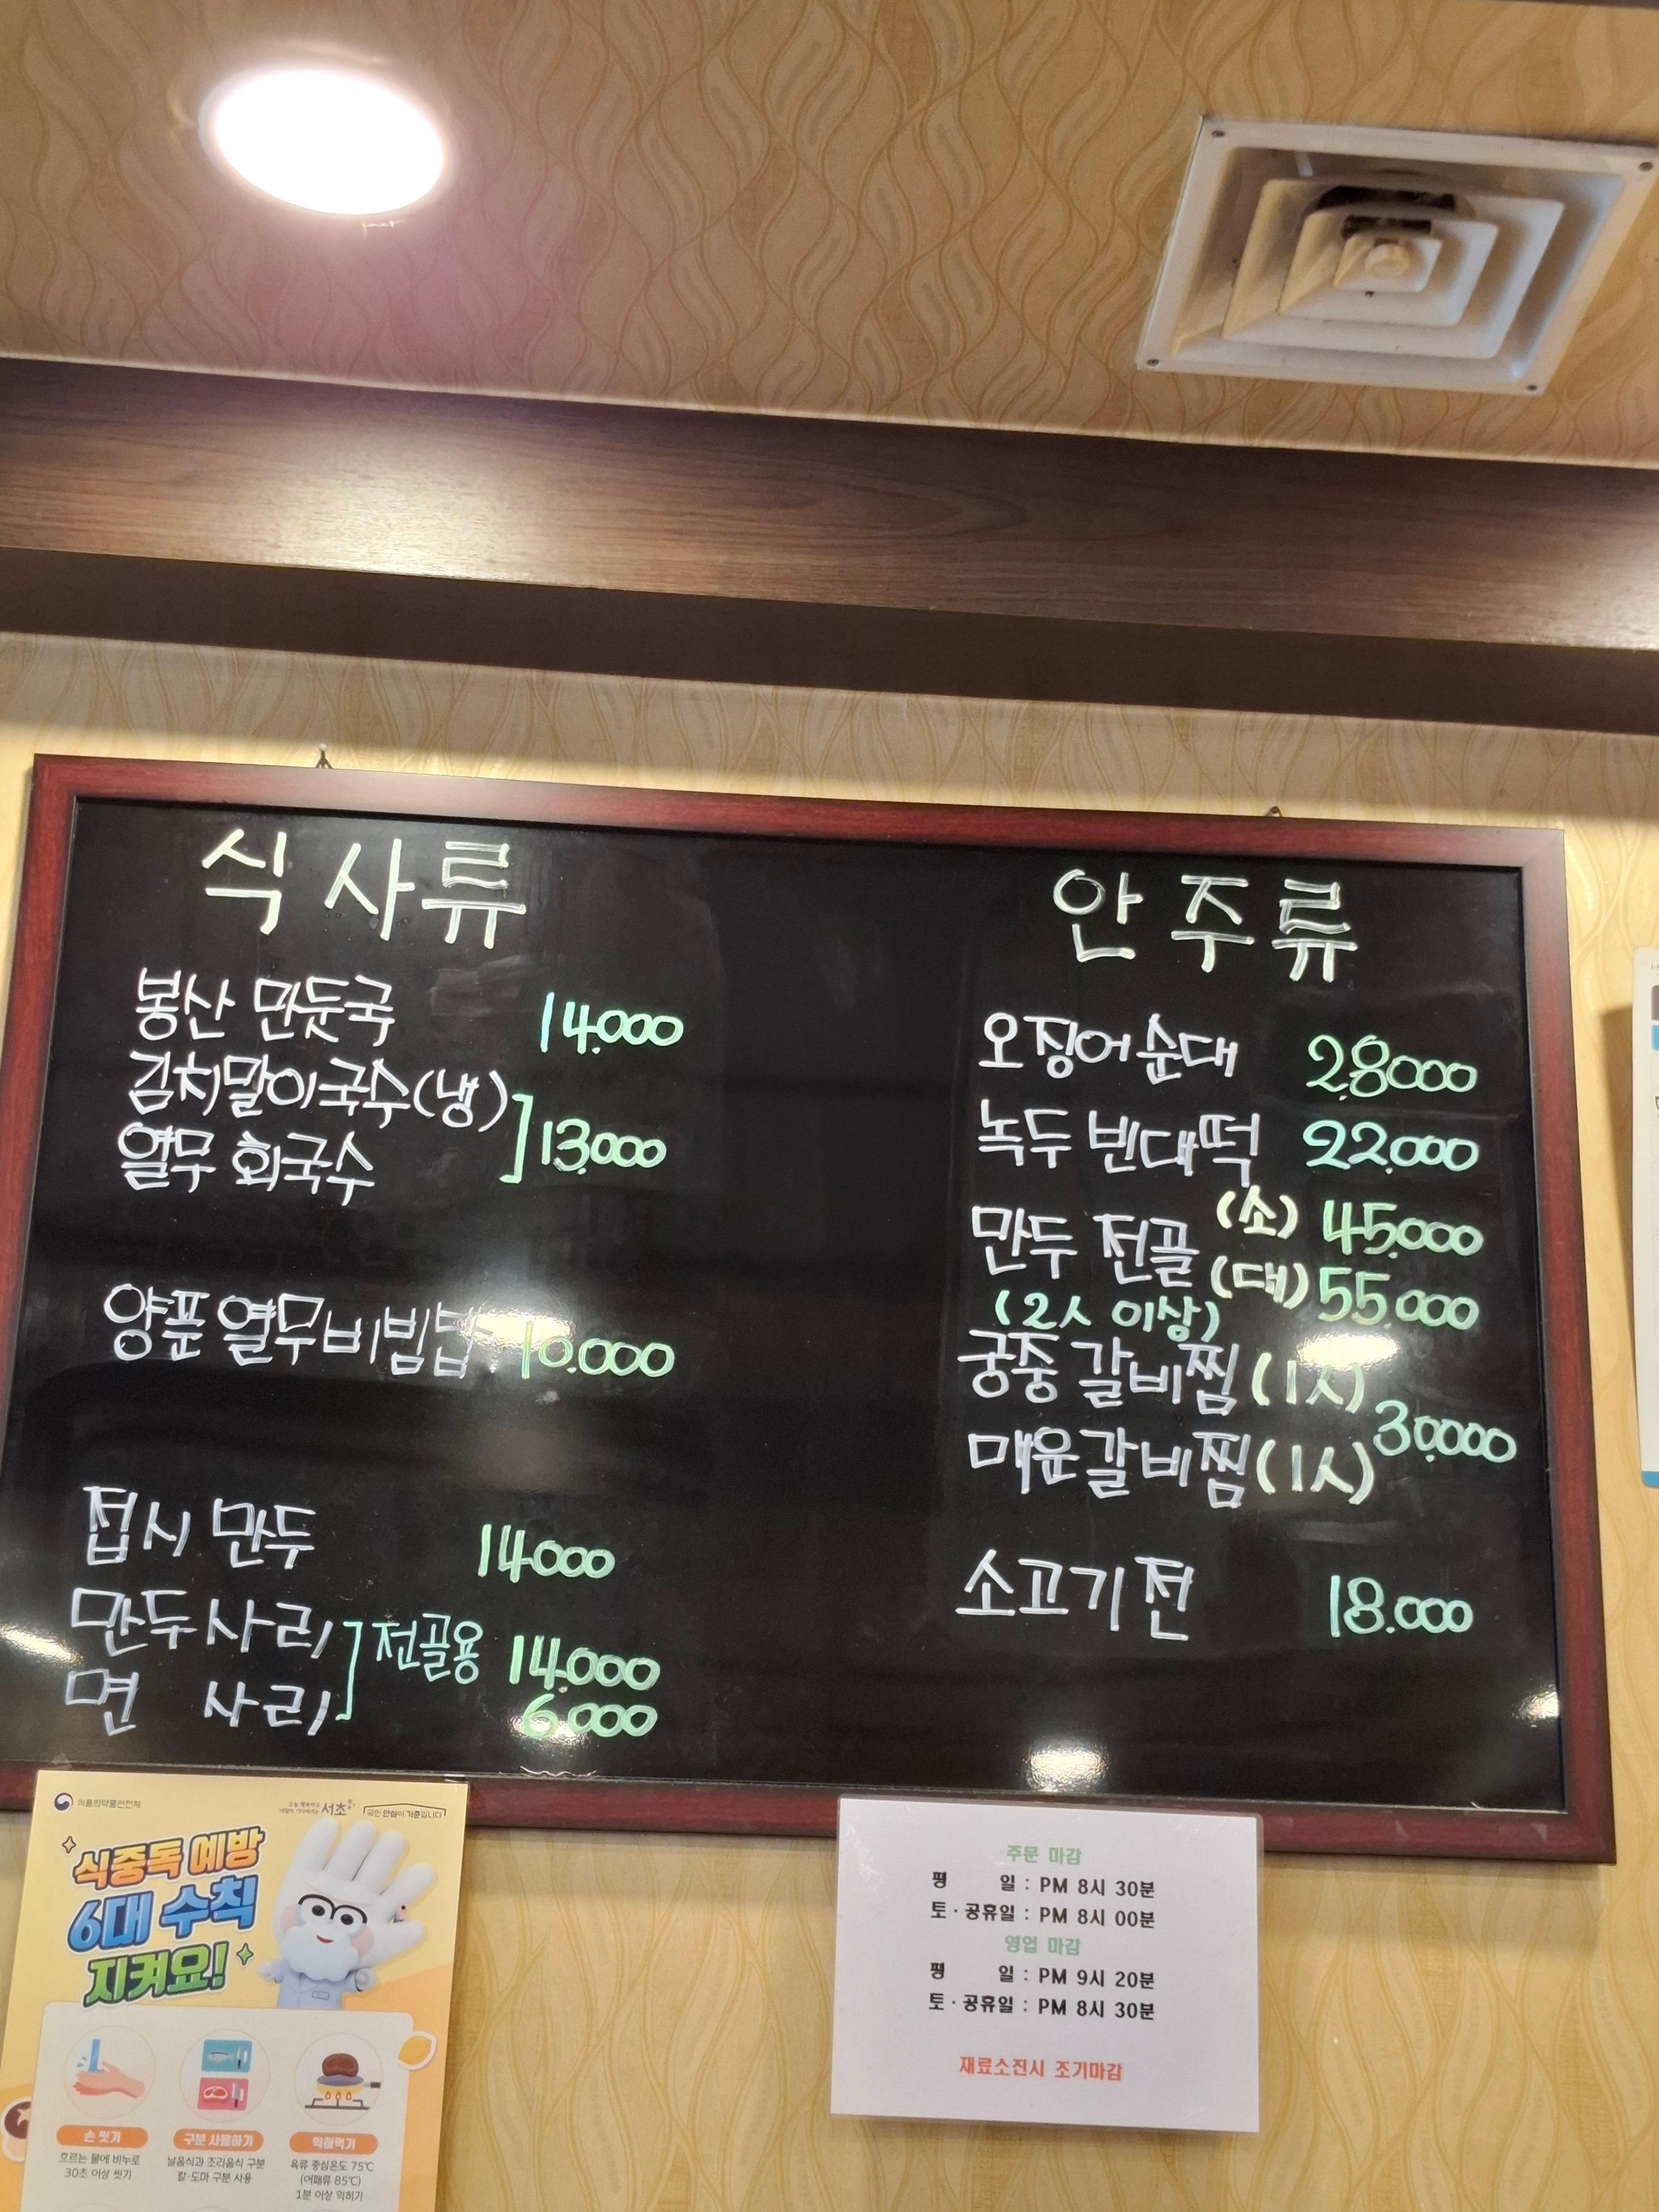 식사류
봉산 만둣국 14.000
김치말이국수(냉)
열무 회국수 ] 13.000
양푼 열무비빔밥 10.000
접시 만두 14.000
만두사리 ] 전골용 14.000
면 사리 6.000
안주류
오징어순대 28.000
녹두 빈대떡 22.000
만두 전골 (소) 45.000
(대) 55.000
(2人 이상)
궁중 갈비찜 (1人)
30.000
매운갈비찜 (1人)
소고기전 18.000
식품의약품안전처
서초
국민 안심이 기준입니다
식중독 예방
6대 수칙
지켜요!
손 씻기
흐르는 물에 비누로
30초 이상 씻기
구분 사용하기
날음식과 조리음식 구분
칼·도마 구분 사용
익혀먹기
육류 중심온도 75℃
(어패류 85℃)
1분 이상 익히기
주문 마감
평 일 : PM 8시 30분
토·공휴일 : PM 8시 00분
영업 마감
평 일 : PM 9시 20분
토·공휴일 : PM 8시 30분
재료소진시 조기마감